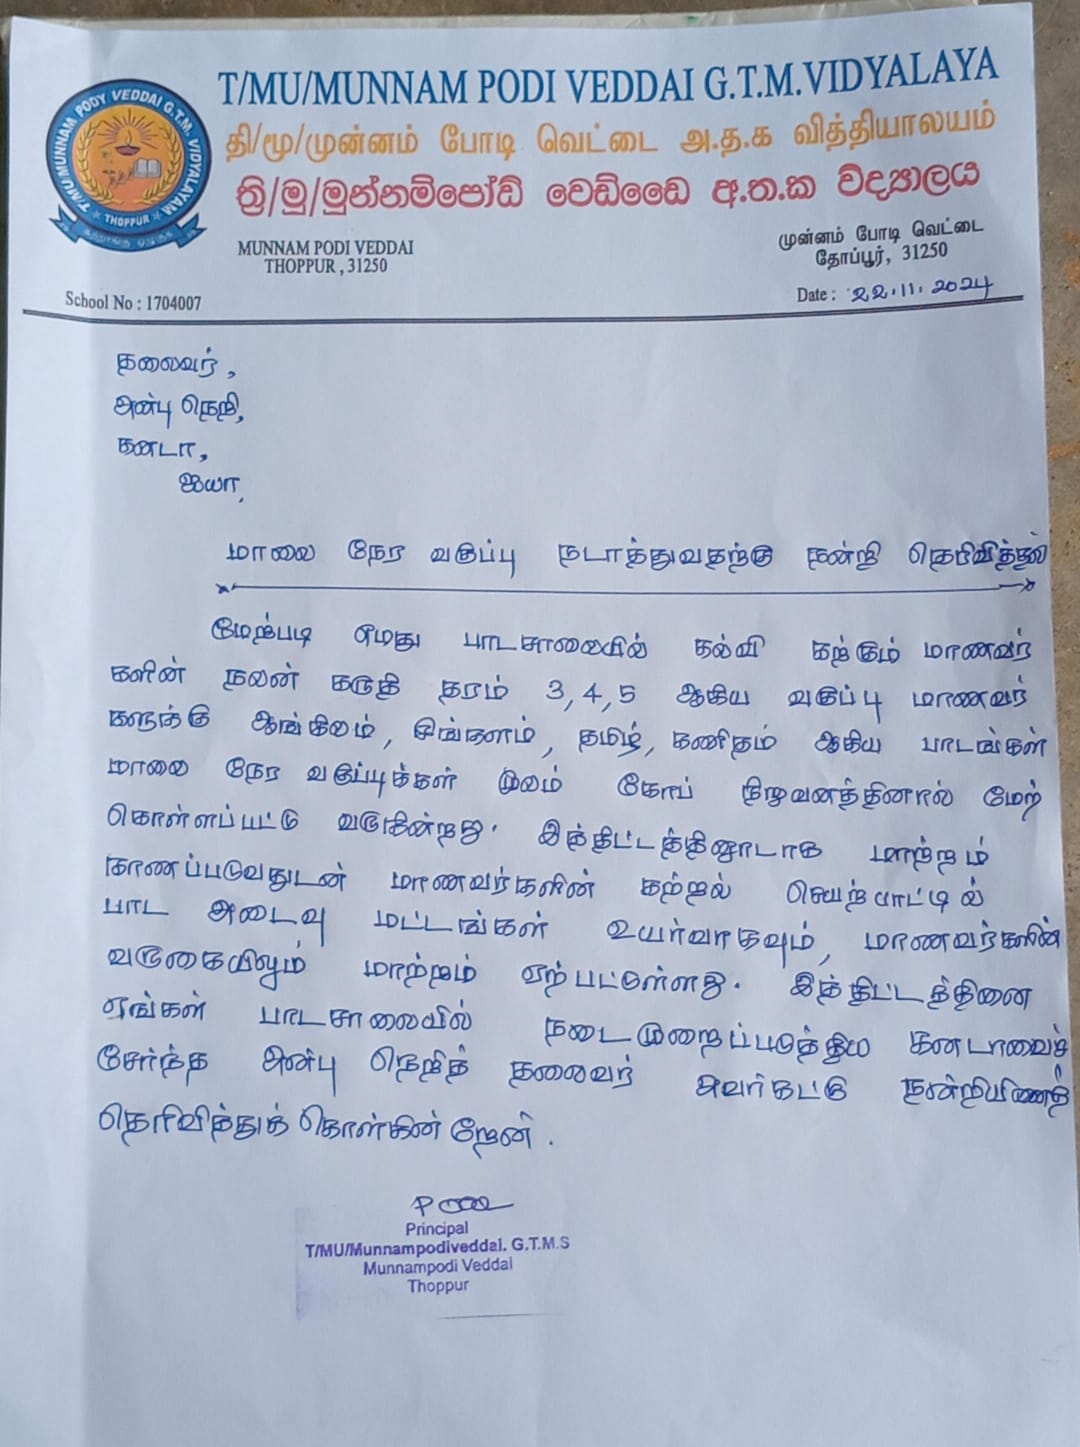 T/MU/MUNNAM PODI VEDDAI G.T.M.VIDYALAYA
தி/மூ/முன்னம் போடி வெட்டை அ.த.க வித்தியாலயம்
ත්‍රි/මු/මුන්නම්පෝඩි වෙඩ්ඩෛ අ.ත.ක විද්‍යාලය
T/MU/MUNNAM PODY VEDDAI G.T.M. VIDYALAYAM
THOPPUR
MUNNAM PODI VEDDAI
THOPPUR , 31250
முன்னம் போடி வெட்டை
தோப்பூர், 31250
School No : 1704007
Date : 22.11.2024
தலைவர்,
அன்பு நெறி,
கனடா,
ஐயா,
மாலை நேர வகுப்பு நடாத்துவதற்கு நன்றி தெரிவித்தல்
மேற்படி எமது பாடசாலையில் கல்வி கற்கும் மாணவர்
களின் நலன் கருதி தரம் 3,4,5 ஆகிய வகுப்பு மாணவர்
களுக்கு ஆங்கிலம், சிங்களம், தமிழ், கணிதம் ஆகிய பாடங்கள்
மாலை நேர வகுப்புக்கள் மூலம் கோப் நிறுவனத்தினால் மேற்
கொள்ளப்பட்டு வருகின்றது. இத்திட்டத்தினூடாக மாற்றம்
காணப்படுவதுடன் மாணவர்களின் கற்றல் செயற்பாட்டில்
பாட அடைவு மட்டங்கள் உயர்வாகவும், மாணவர்களின்
வருகையிலும் மாற்றம் ஏற்பட்டுள்ளது. இத்திட்டத்தினை
எங்கள் பாடசாலையில் நடைமுறைப்படுத்திய கனடாவைச்
சேர்ந்த அன்பு நெறித் தலைவர் அவர்கட்கு நன்றியினைத்
தெரிவித்துக் கொள்கின்றேன்.
Principal
T/MU/Munnampodiveddai. G.T.M.S
Munnampodi Veddai
Thoppur